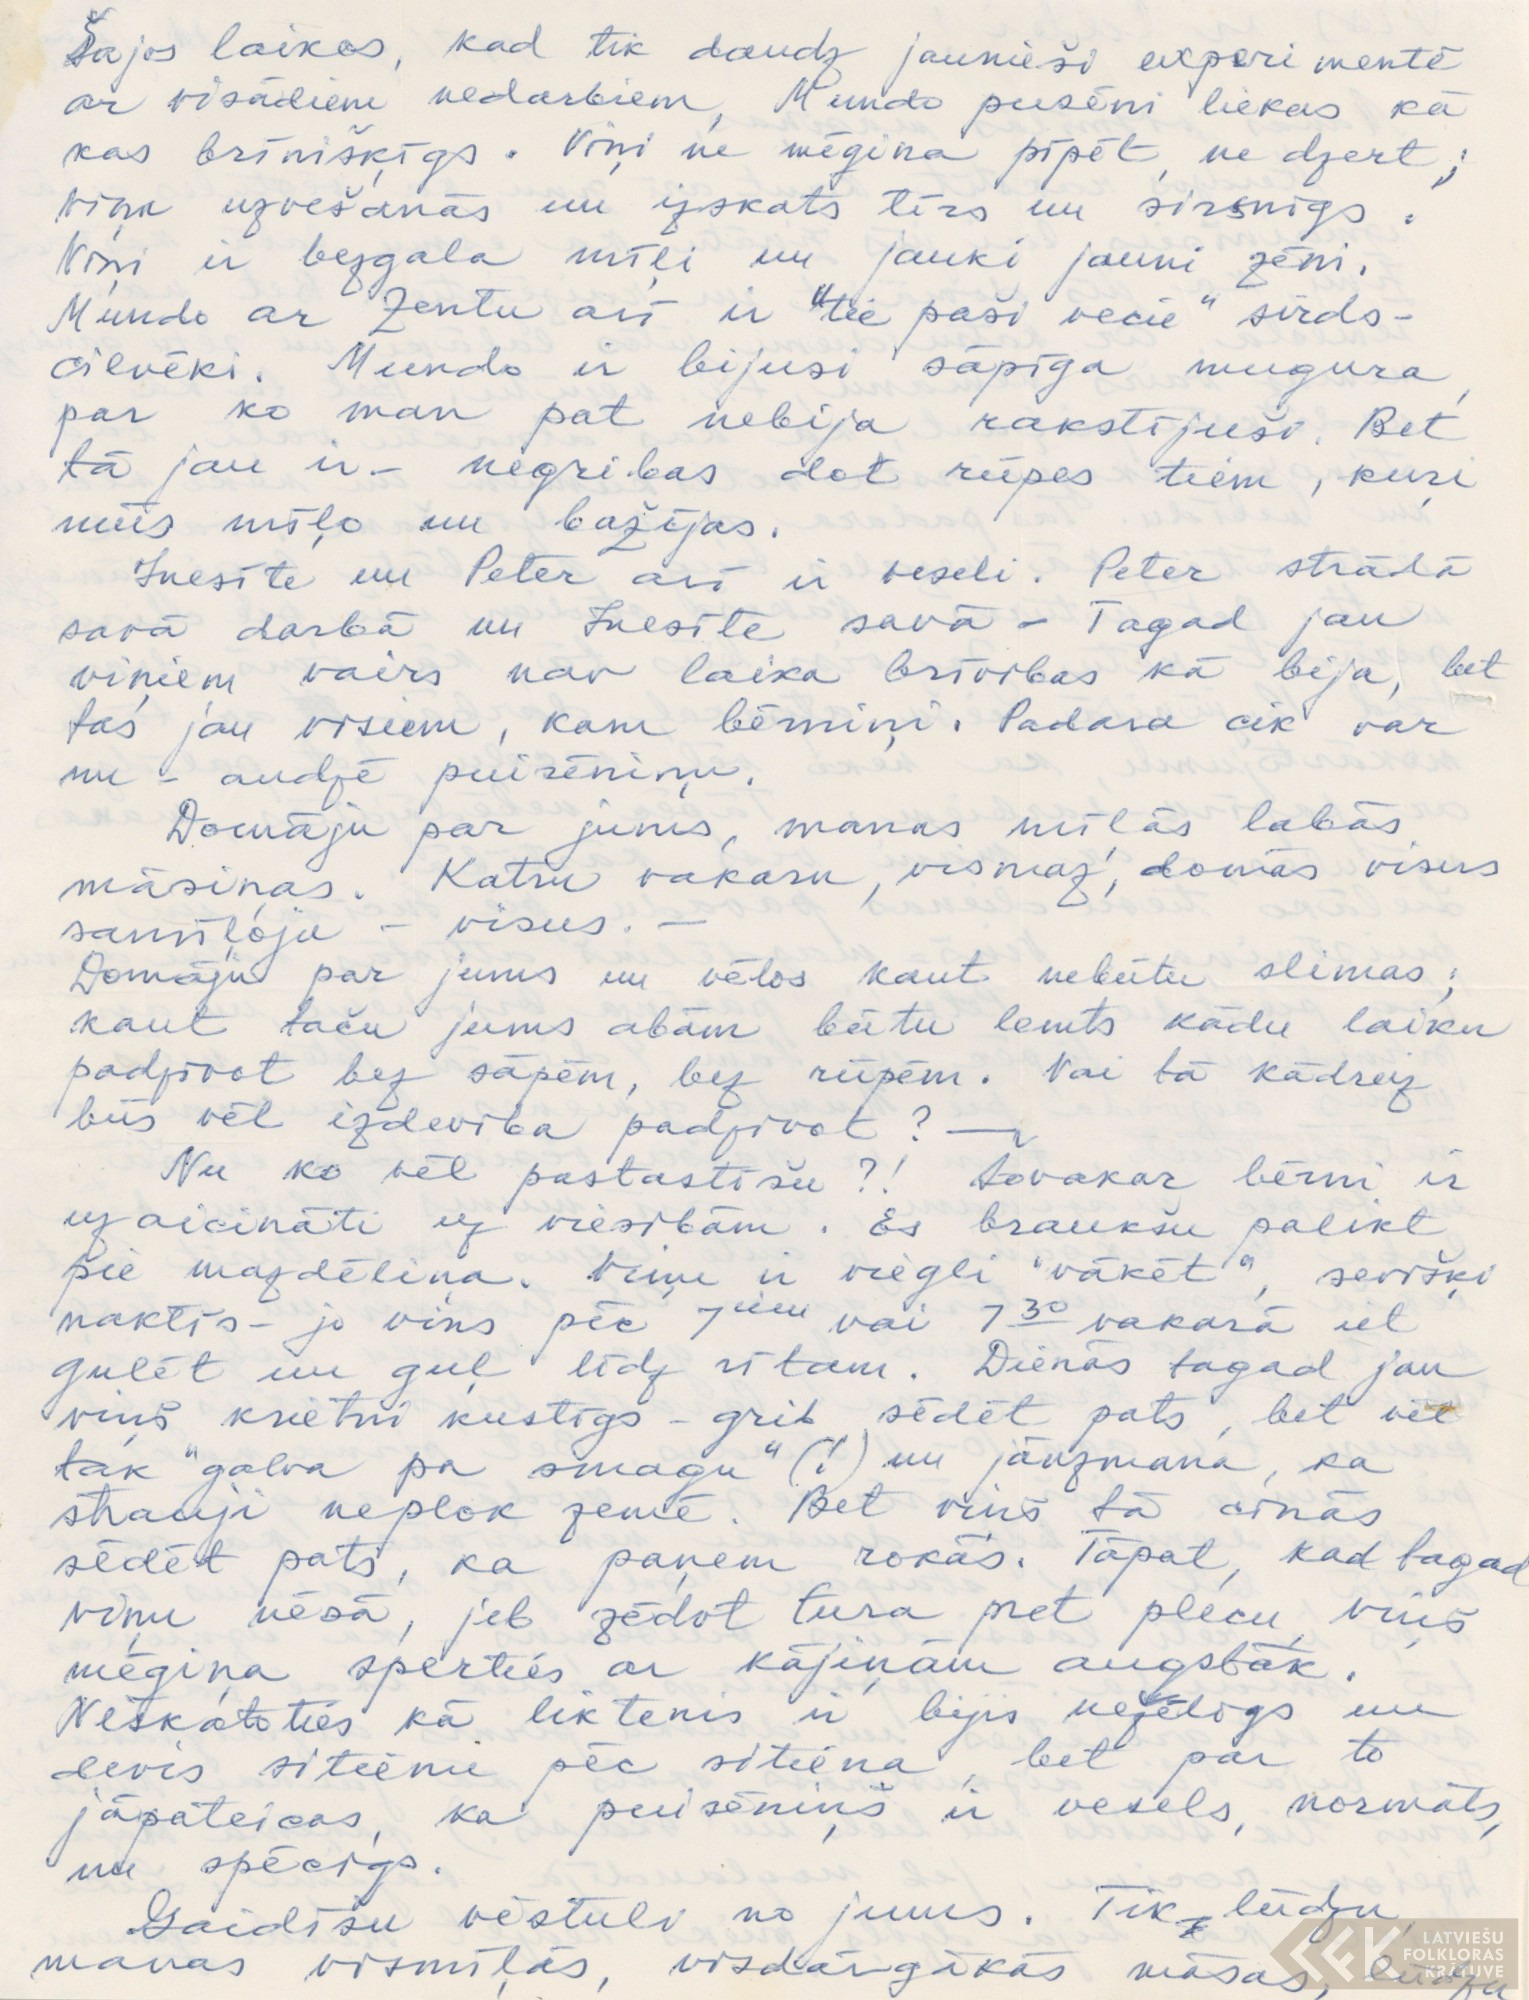 Šajos laikos, kad tik daudz jaunieši experimentē
ar visādiem nedarbiem, Mundo pusēni liekas kā
kas brīnišķīgs. Viņi ne mēģina pīpēt, ne dzert;
viņu uzvešanās un izskats tīrs un sirsnīgs.
Viņi ir bezgala mīļi un jauki jauni zēni.
Mundo ar Zentu arī ir "tie paši vecie" sirds-
cilvēki. Mundo ir bijusi sāpīga mugura,
par ko man pat nebija rakstījuši. Bet
tā jau ir – negribas dot rūpes tiem, kuŗi
mūs mīļo un bažījas.
Inesīte un Peter arī ir veseli. Peter strādā
savā darbā un Inesīte savā – Tagad jau
viņiem vairs nav laika brīvības kā bija, bet
tas jau visiem, kam bērniņi. Padara cik var
un – audzē puisēniņu.
Domāju par jums, manas mīļās labās
māsiņas. Katru vakaru, vismaz, domās visus
samīļoju – visus. –
Domāju par jums un vēlos kaut nebūtu slimas;
kaut taču jums abām būtu lemts kādu laiku
padzīvot bez sāpēm, bez rūpēm. Vai tā kādreiz
būs vēl izdevība padzīvot? –
Nu ko vēl pastastīšu?! Šovakar bērni ir
uzaicināti uz viesībām. Es braukšu palikt
pie mazdēliņa. Viņu ir viegli "vākēt", sevišķi
naktīs – jo viņš pēc 7iem vai 7 30 vakarā iet
gulēt un guļ līdz rītam. Dienās tagad jau
viņš krietni kustīgs – grib sēdēt pats, bet vēl
tak "galva pa smagu" (!) un jāuzmana, ka
strauji neplok zemē. Bet viņš tā cīnās
sēdēt pats, ka paņem rokās. Tāpat, kad tagad
viņu nēsā, jeb zēdot tura pret plecu, viņš
mēģiņa sperties ar kājiņām augstāk.
Neskatoties kā liktenis ir bijis nežēlīgs un
devis sitienu pēc sitiena, bet par to
jāpateicas, ka puisēniņš ir vesels, normāls,
un spēcīgs.
Gaidīšu vēstuli no jums. Tik lūdzu,
manas vismīļās, visdārgākās māsas, lūdzu
LATVIEŠU
FOLKLORAS
KRĀTUVE